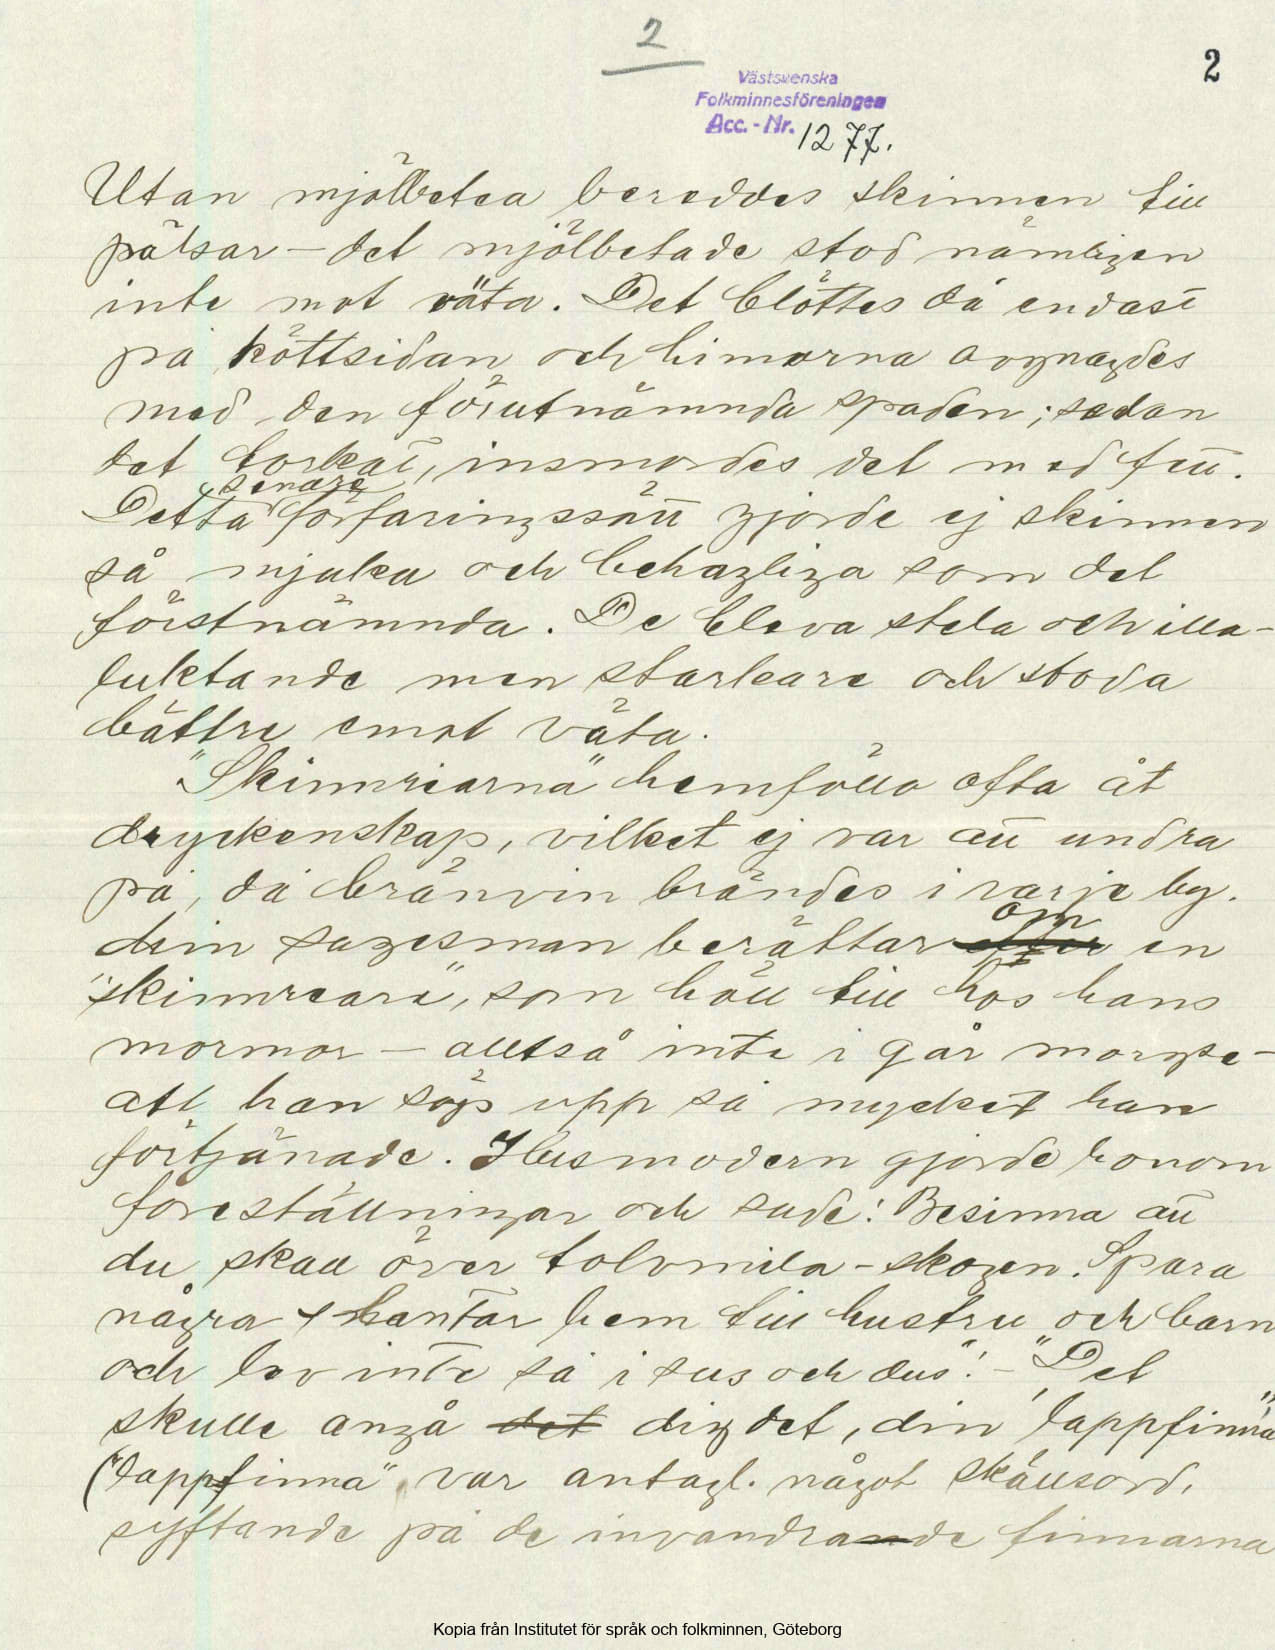 2
2
Västsvenska
Folkminnesföreningen
Acc.-Nr. 1277.
Utan mjölbetea bereddes skinnen till
pälsar – det mjölbetade stod nämligen
inte mot väta. Det blöttes då endast
på köttsidan och hinnorna avgnagdes
med den förutnämnda spaden; sedan
det torkat, insmordes det med fett.
senare
Detta förfaringssätt gjorde ej skinnen
så mjuka och behagliga som det
förstnämnda. De bleva stela och illa-
luktande men starkare och stodo
bättre emot väta.
"Skinnrearna" hemföllo ofta åt
dryckenskap, vilket ej var att undra
på, då bränvin brändes i varje by.
om
Min sagesman berättar en
"skinnreare", som höll till hos hans
mormor – alltså inte i går morgse –
att han söp upp så mycket han
förtjänade. Husmodern gjorde honom
föreställningar och sade: Besinna att
du skall över tolvmila-skogen. Spara
några skantar hem till hustru och barn
och lev inte så i sus och dus"! – "Det
skulle angå det dig det, din lappfinna"
("lappfinna" var antagl. något skällsord,
syftande på de invandrande finnarna
Kopia från Institutet för språk och folkminnen, Göteborg